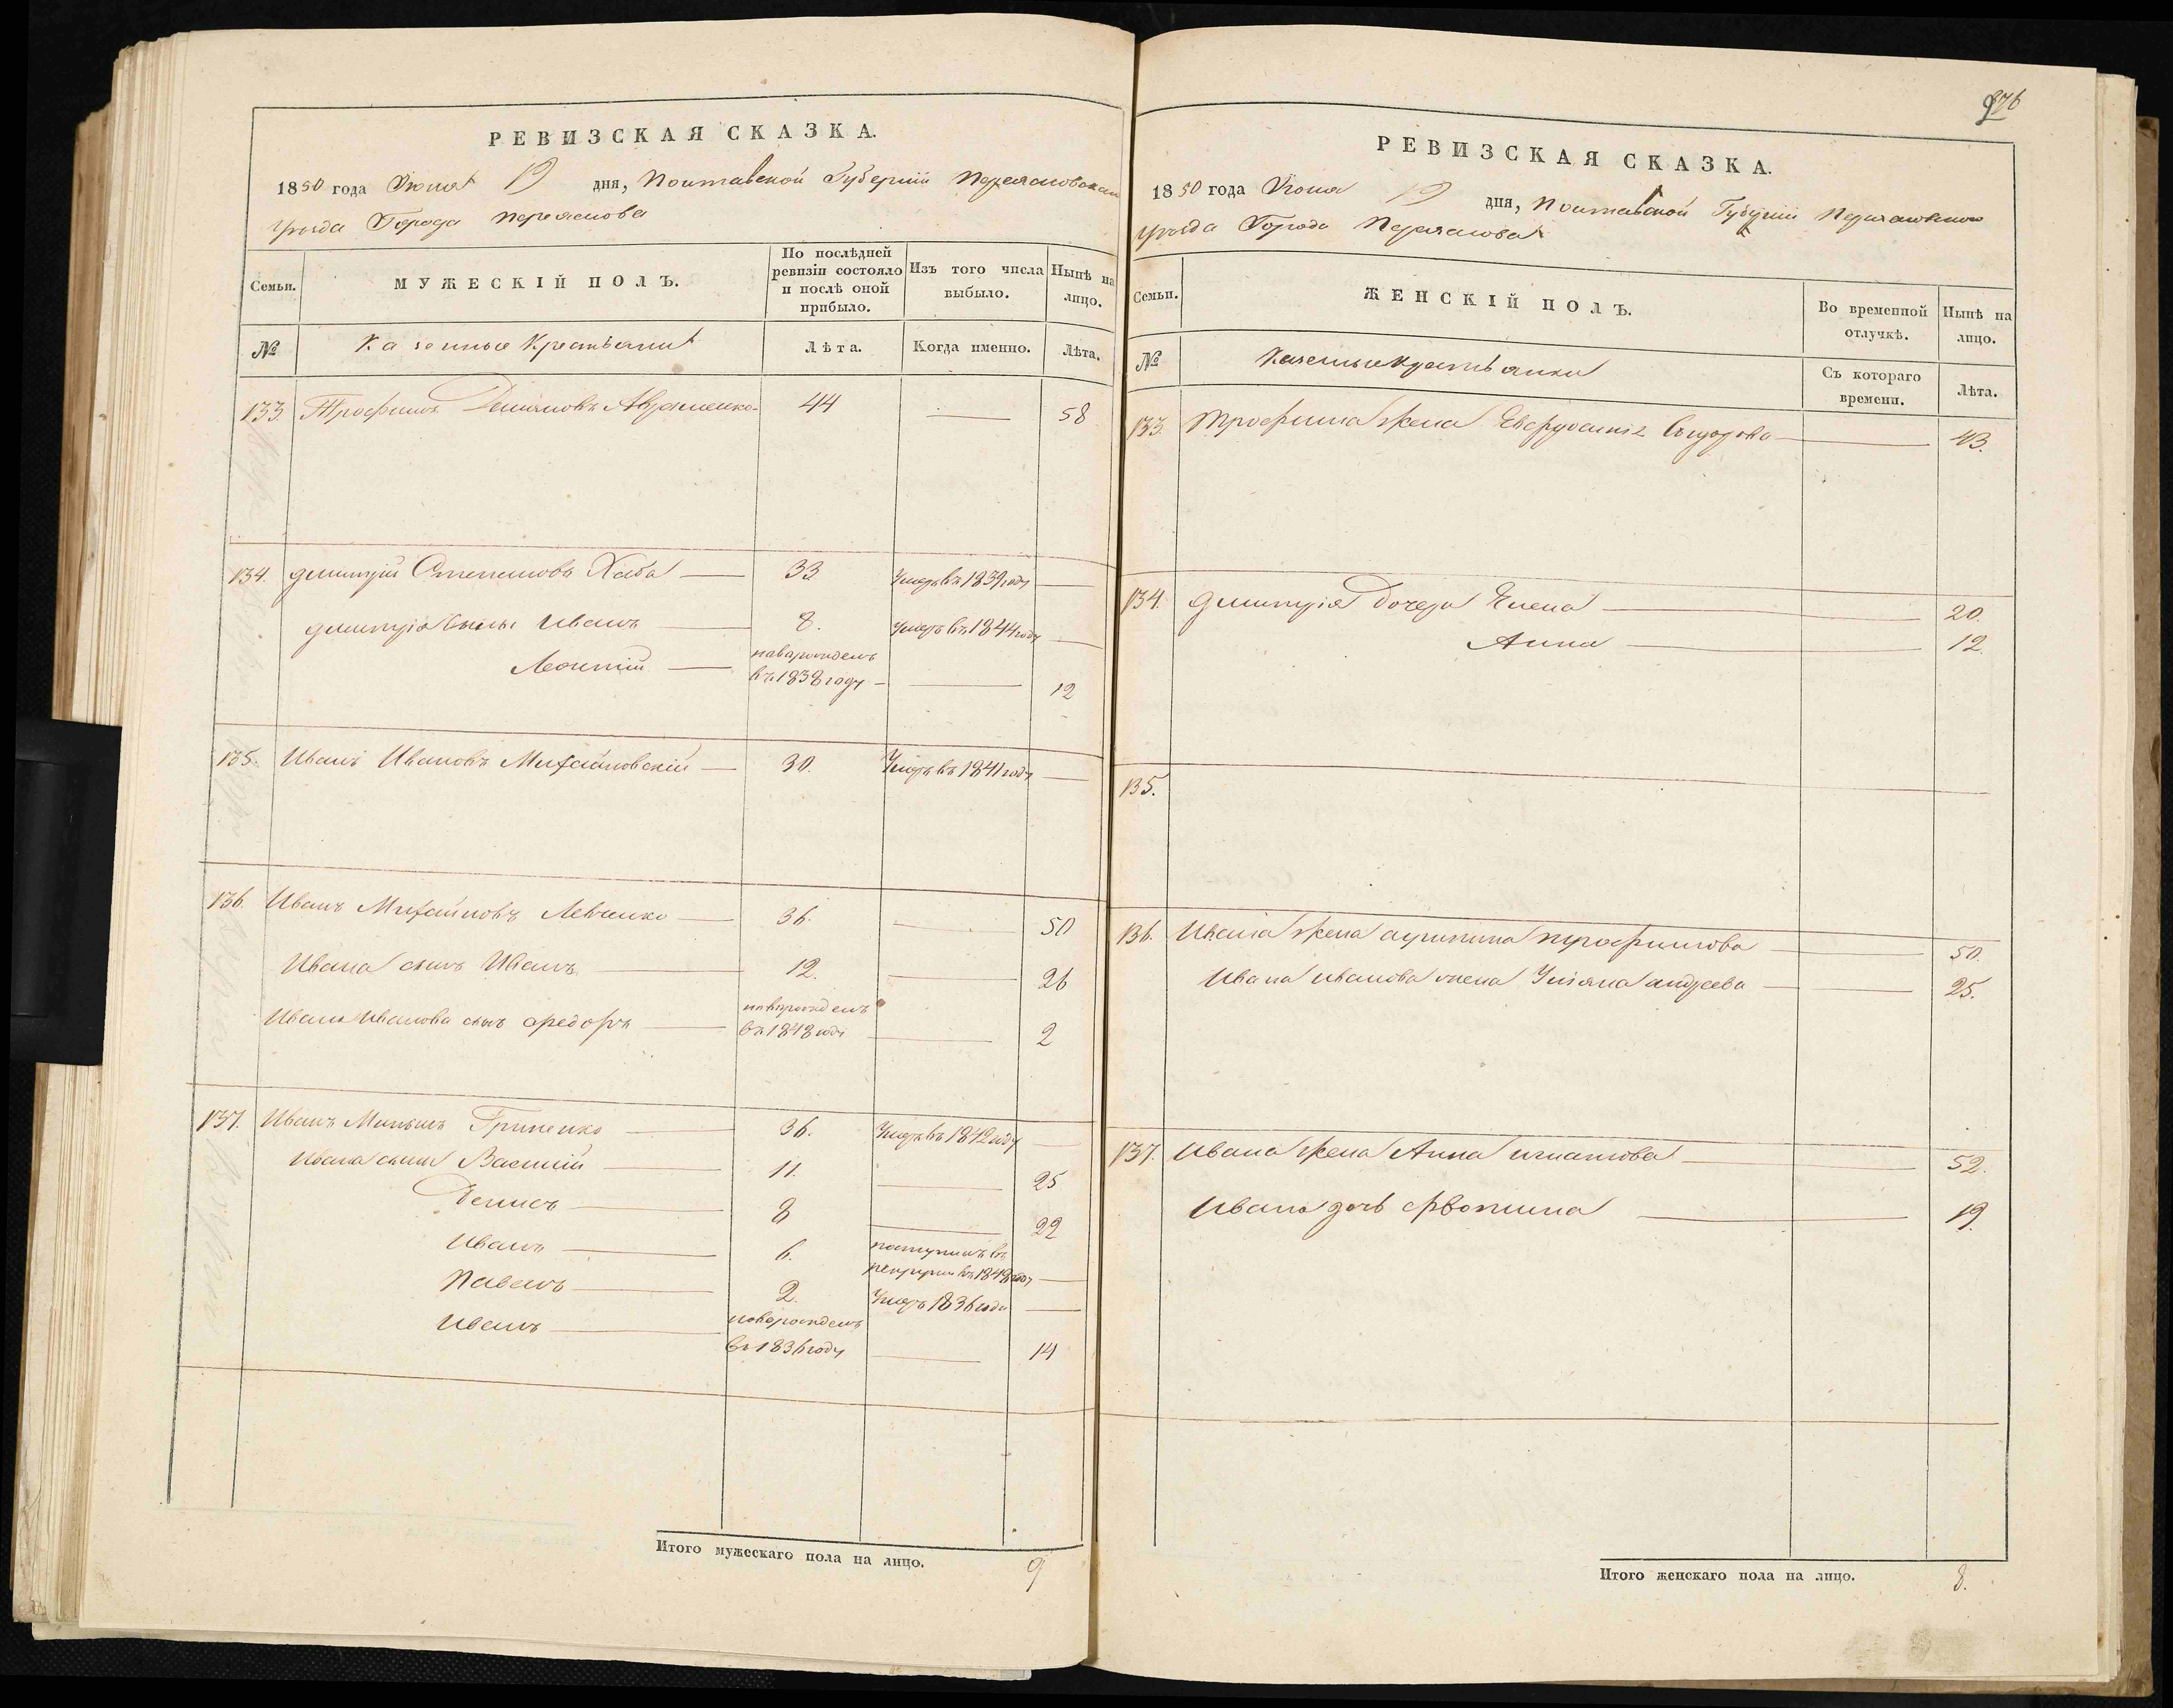 РЕВИЗСКАЯ СКАЗКА.
1850 года Июня 19 дня, Полтавской Губерніи Переясловскаго
уѣзда Города Переяслова
Семьи.
МУЖЕСКІЙ ПОЛЪ.
По послѣдней ревизіи состояло и послѣ оной прибыло.
Изъ того числа выбыло.
Нынѣ на лицо.
№
Казенные Крестьяни
Лѣта.
Когда именно.
Лѣта.
133. Трофимъ Демяновъ Авраменко 44 58
134. Дмитрій Степановъ Хаба 33 Умеръ въ 1839 году
Дмитрія Сыны Иванъ 8. Умеръ въ 1844 году
Леонтій новорожденъ въ 1838 году 12
135. Иванъ Ивановъ Михайловскій 30. Умеръ въ 1841 году
136 Иванъ Михайловъ Левченко 36. 50
Ивана сынъ Иванъ 12. 26
Ивана Иванова сынъ Федоръ новорожденъ въ 1848 году 2
137. Иванъ Гриненко 36. Умеръ въ 1842 году
Ивана сыны Василій 11. 25
Денисъ 8 22
Иванъ 6. поступилъ въ рекруты въ 1848 году
Павелъ 2. Умеръ 1836 года
Иванъ новорожденъ въ 1836 году 14
Итого мужескаго пола на лицо. 9
276
РЕВИЗСКАЯ СКАЗКА.
1850 года Июня 19 дня, Полтавской Губерніи Переясловского
уѣзда Города Переяслова
Семьи.
ЖЕНСКІЙ ПОЛЪ.
Во временной отлучкѣ.
Нынѣ на лицо.
№
Казенные Крестьянки
Съ котораго времени.
Лѣта.
133. Трофима жена Евфросинія Сидорова 43.
134. Дмитрія Дочери Елена 20.
Анна 12.
135.
136. Ивана жена Агрипина Трофимова 50.
Ивана Иванова жена Уліяна Андреева 25.
137. Ивана жена Анна Игнатова 52.
Ивана дочь 19.
Итого женскаго пола на лицо. 8.